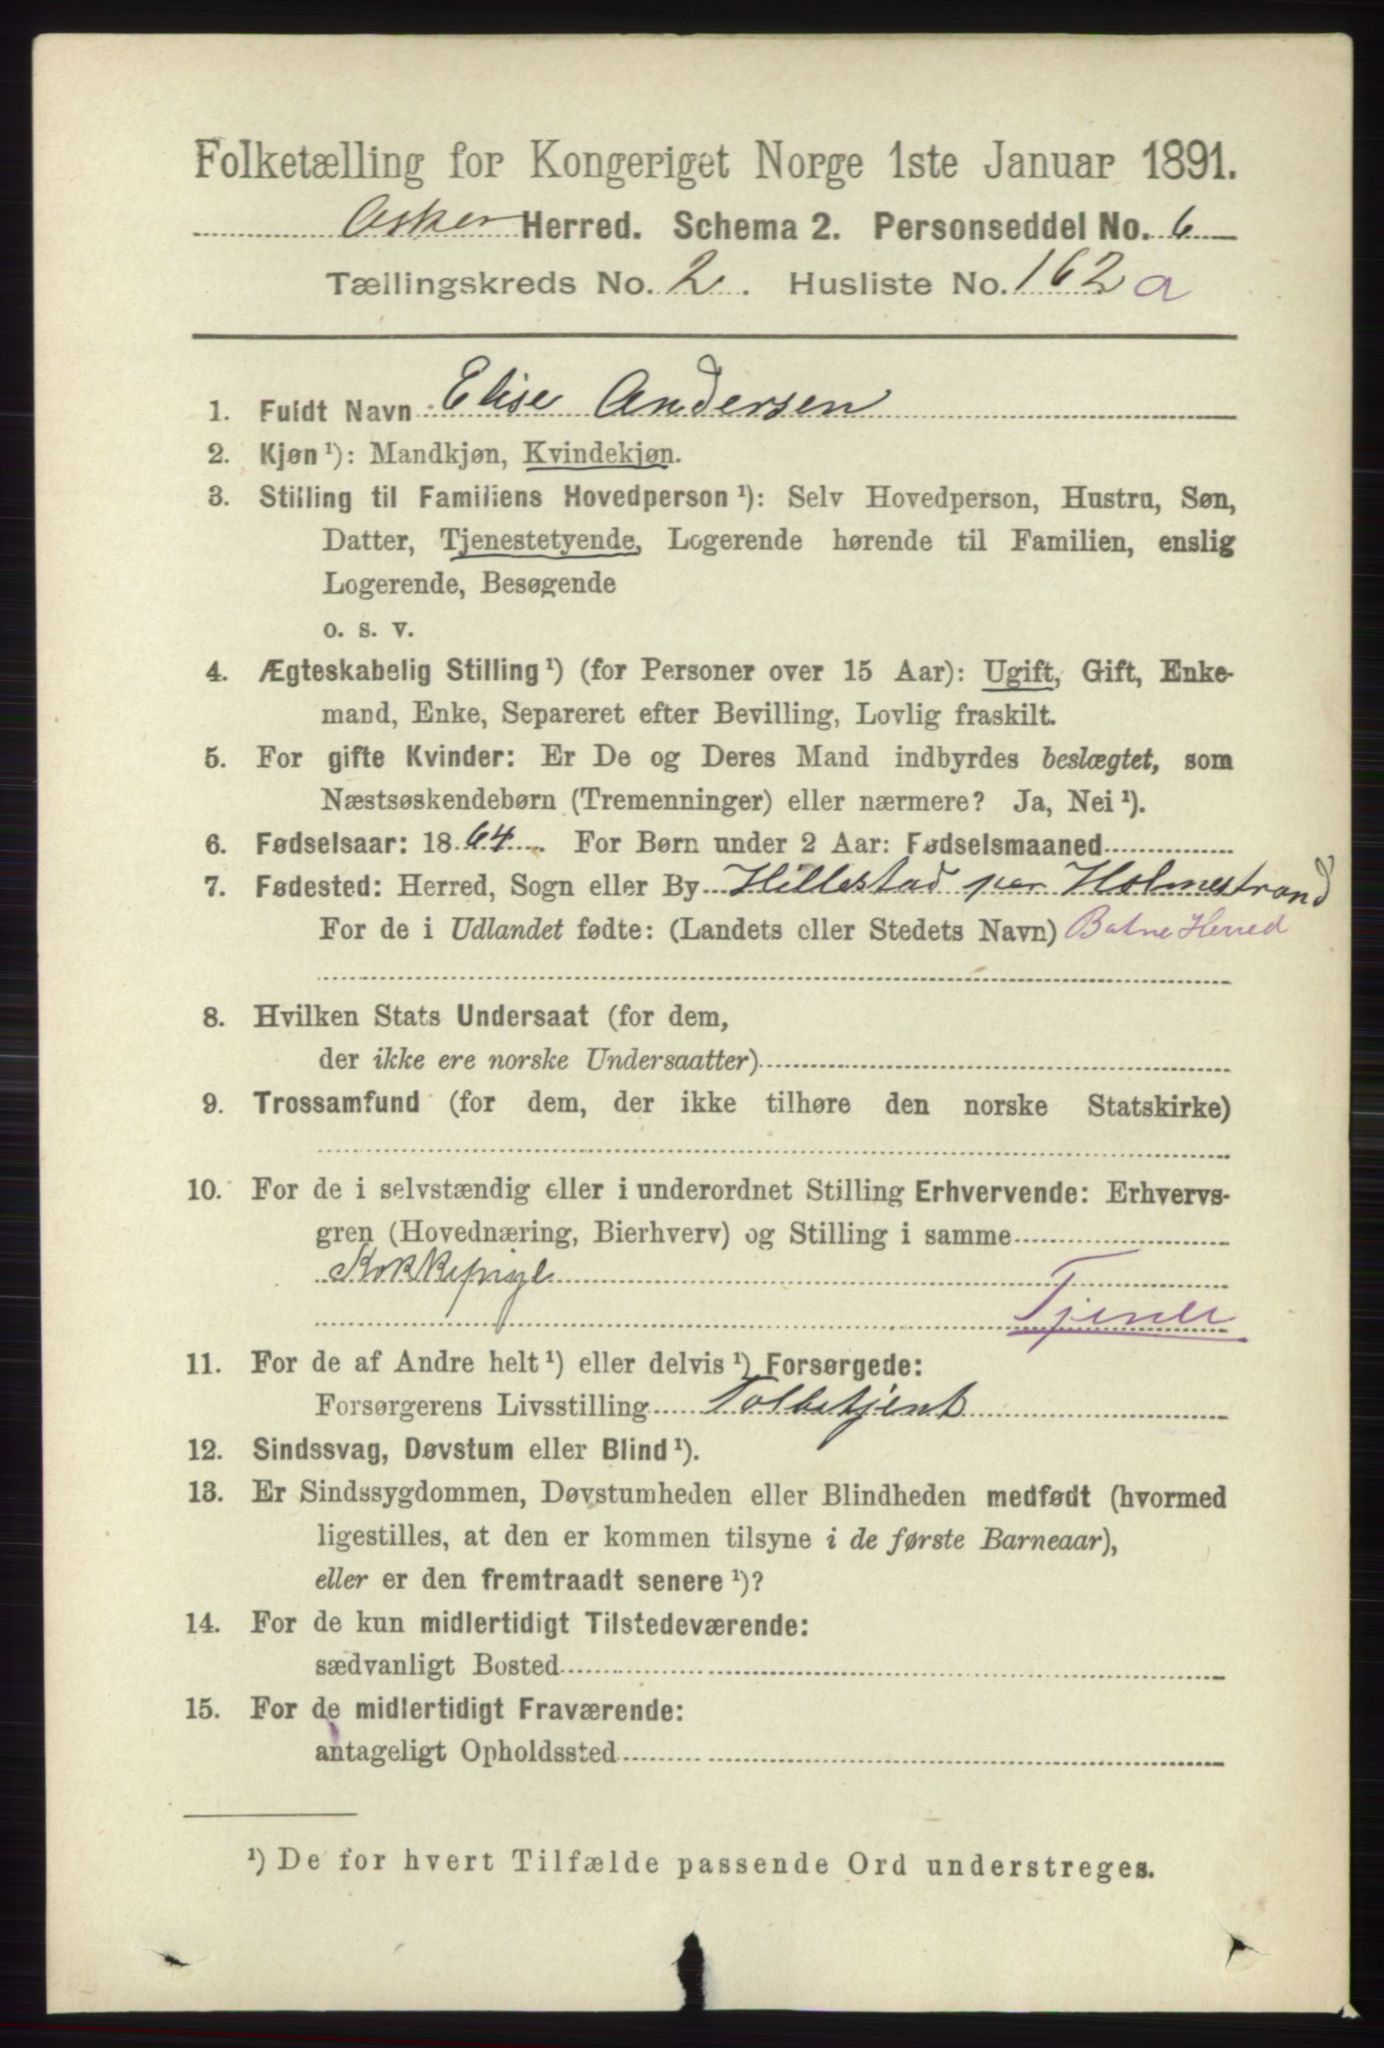 Folketælling for Kongeriget Norge 1ste Januar 1891.
Asker Herred. Schema 2. Personseddel No. 6
Tællingskreds No. 2. Husliste No. 162 a
1. Fuldt Navn Elise Andersen
2. Kjøn ¹): Mandkjøn, Kvindekjøn.
3. Stilling til Familiens Hovedperson ¹): Selv Hovedperson, Hustru, Søn,
Datter, Tjenestetyende, Logerende hørende til Familien, enslig
Logerende, Besøgende
o. s. v.
4. Ægteskabelig Stilling ¹) (for Personer over 15 Aar): Ugift, Gift, Enke-
mand, Enke, Separeret efter Bevilling, Lovlig fraskilt.
5. For gifte Kvinder: Er De og Deres Mand indbyrdes beslægtet, som
Næstsøskendebørn (Tremenninger) eller nærmere? Ja, Nei ¹).
6. Fødselsaar: 1864. For Børn under 2 Aar: Fødselsmaaned
7. Fødested: Herred, Sogn eller By Hillestad per Holmestrand
For de i Udlandet fødte: (Landets eller Stedets Navn) Botne Herred
8. Hvilken Stats Undersaat (for dem,
der ikke ere norske Undersaatter)
9. Trossamfund (for dem, der ikke tilhøre den norske Statskirke)
10. For de i selvstændig eller i underordnet Stilling Erhvervende: Erhvervs-
gren (Hovednæring, Bierhverv) og Stilling i samme
Kokkepige
Tjener
11. For de af Andre helt ¹) eller delvis ¹) Forsørgede:
Forsørgerens Livsstilling Toldbetjent
12. Sindssvag, Døvstum eller Blind ¹).
13. Er Sindssygdommen, Døvstumheden eller Blindheden medfødt (hvormed
ligestilles, at den er kommen tilsyne i de første Barneaar),
eller er den fremtraadt senere ¹)?
14. For de kun midlertidigt Tilstedeværende:
sædvanligt Bosted
15. For de midlertidigt Fraværende:
antageligt Opholdssted
¹) De for hvert Tilfælde passende Ord understreges.